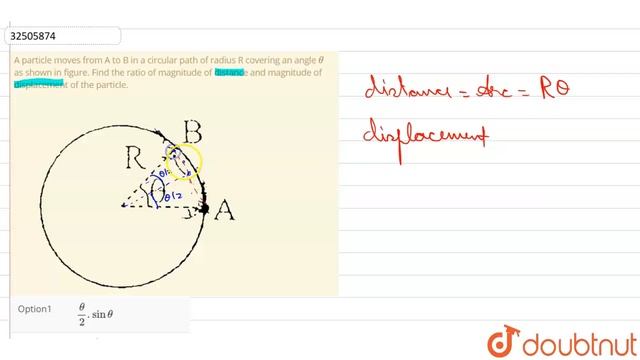 32505874
A particle moves from A to B in a circular path of radius R covering an angle θ
as shown in figure. Find the ratio of magnitude of distance and magnitude of
displacement of the particle.
distance = Arc = Rθ
displacement
B
R
θ/2
θ
A
Option1 θ/2 . sin θ
doubtnut